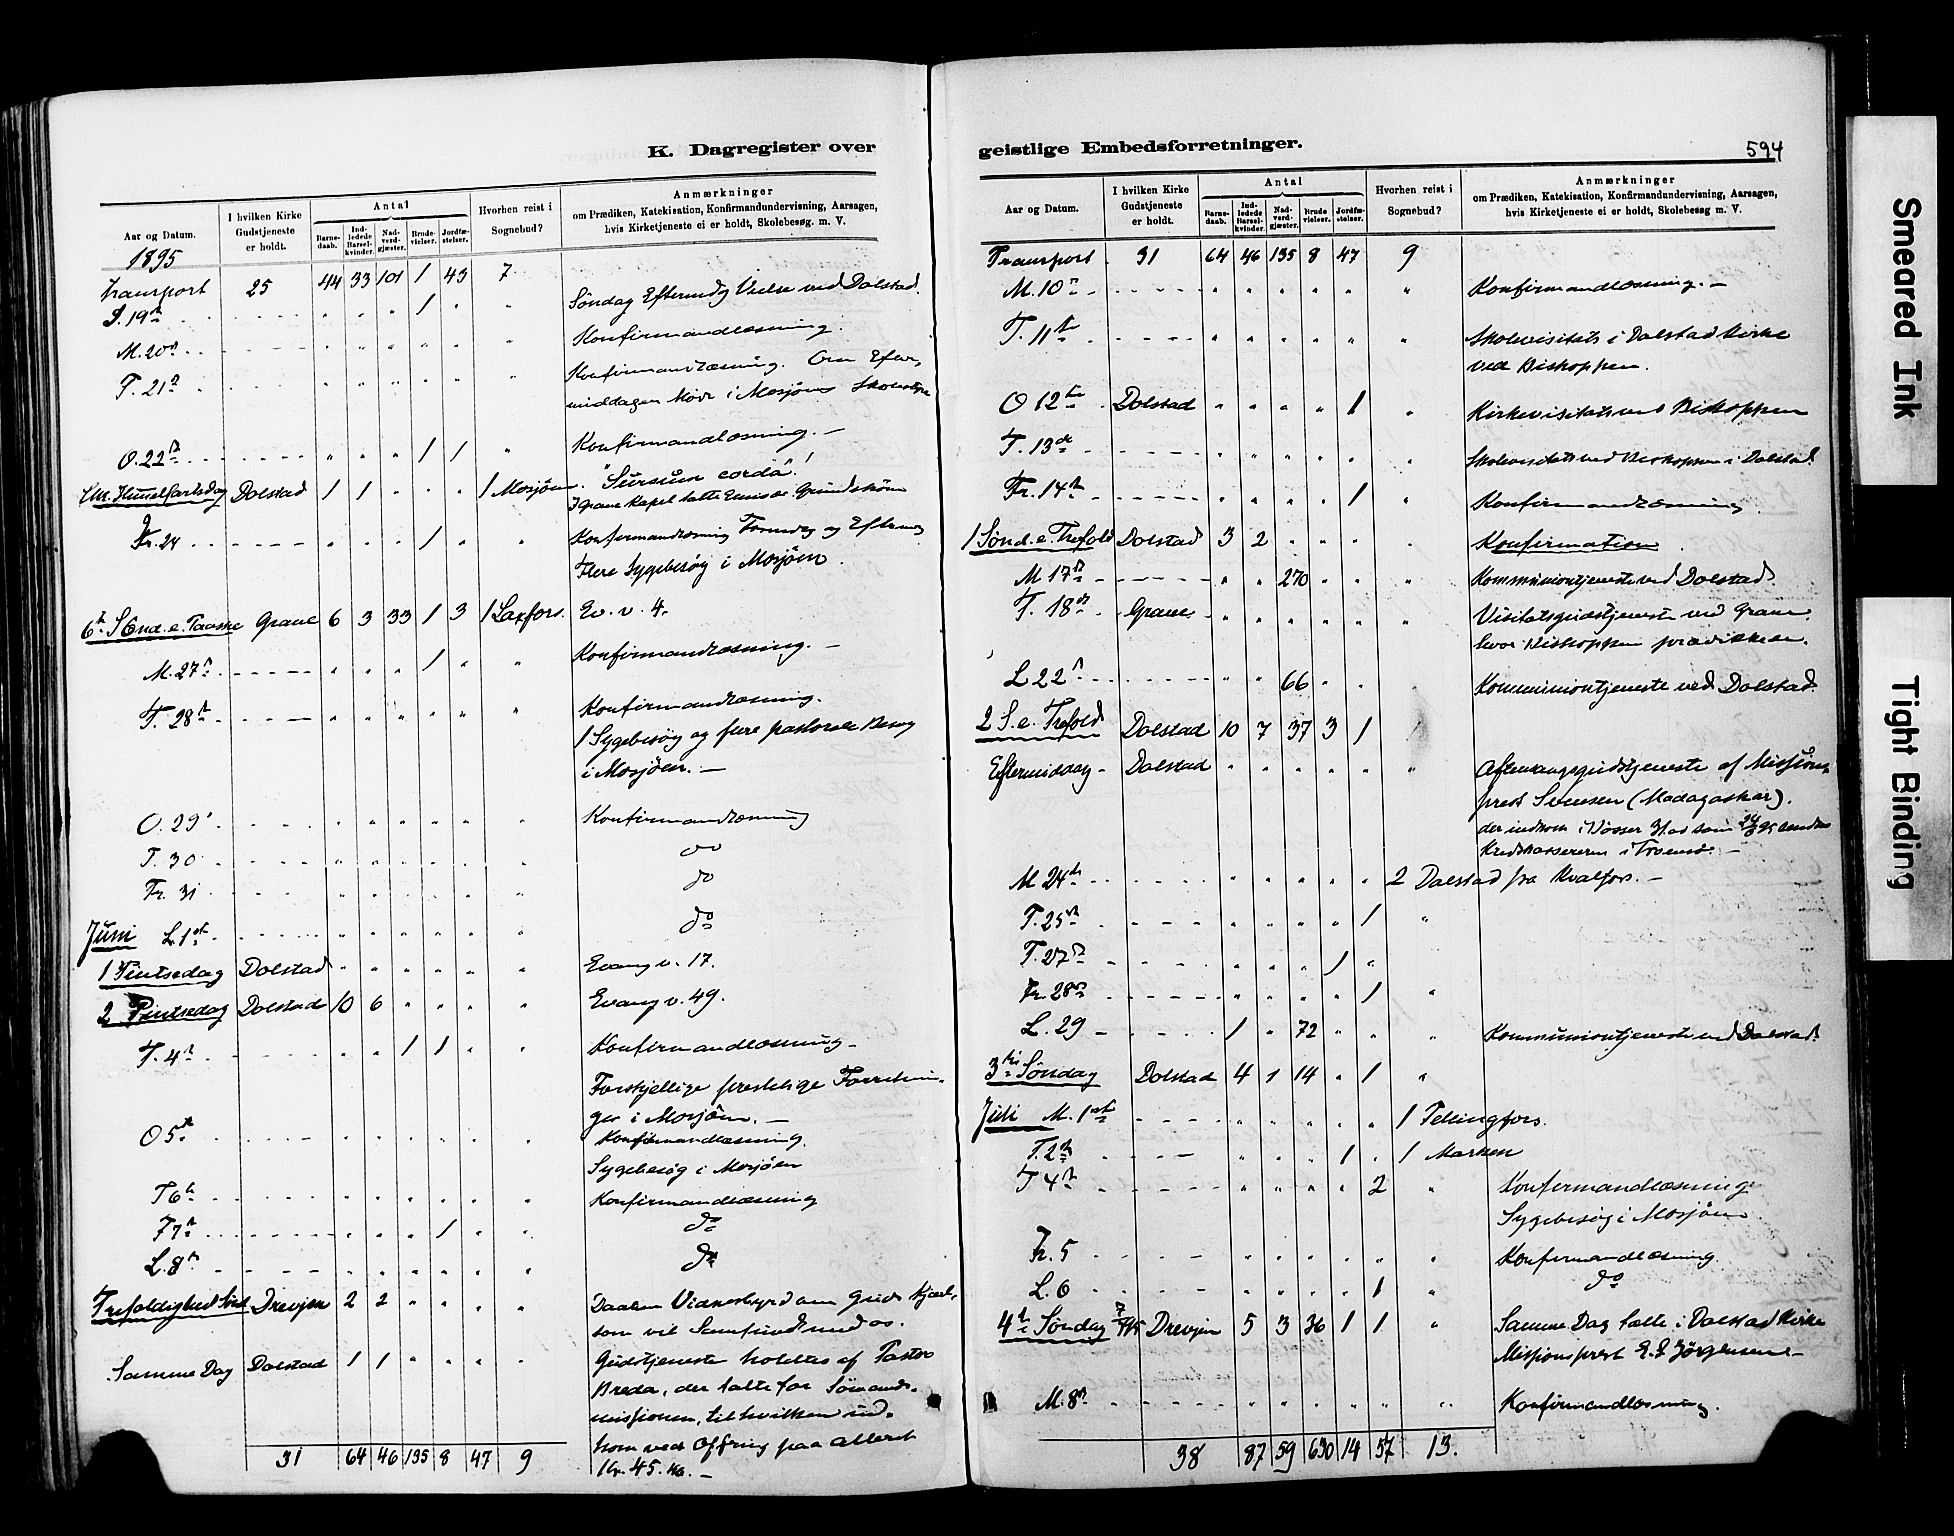 K. Dagregister over
Aar og Datum.
I hvilken Kirke Gudstjeneste er holdt.
Antal
Barnedaab.
Indledede Barselkvinder.
Nadverdgjæster.
Brudevielser.
Jordfæstelser.
Hvorhen reist i Sognebud?
Anmærkninger
om Prædiken, Katekisation, Konfirmandundervisning, Aarsagen,
hvis Kirketjeneste ei er holdt, Skolebesøg m. V.
1895
Transport 25 44 33 101 1 43 7
S. 19de 1 Søndag Eftermdg Vielse ved Dolstad.
M. 20de Konfirmandlæsning.
T. 21de Konfirmandlæsning. Om Efter,
middagen Møde i Mosjøens Skolestyre
O. 22de 1 1 Konfirmandlæsning. —
Chr. Himmelfartsdag Dolstad 1 1 1 Mosjøen. "Sursum corda"!
I Grane Kapel talte Emissær Grundstrøm
Fr. 24 1 Konfirmandlæsning Formdg og Eftermdg
Flere Sygebesøg i Mosjøen.
6te Sønd. e. Paaske Grane 6 3 33 1 3 1 Laxfors. Ev. v. 4.
M. 27de 1 Konfirmandlæsning. —
T. 28de Konfirmandlæsning.
1 Sygebesøg og flere pastorale Besøg
i Mosjøen. —
O. 29de Konfirmandlæsning
T. 30 do
Fr. 31 do
Juni L. 1ste do
1 Pintsedag Dolstad Evang v. 17.
2 Pintsedag Dolstad 10 6 Evang v. 49.
T. 4de 1 1 Konfirmandlæsning –
Forskjellige prestelige Forretnin-
ger i Mosjøen. —
O 5te Konfirmandlæsning.
Sygebesøg i Mosjøen
T 6te Konfirmandlæsning
F 7de 1 do
L. 8de do
Trefoldighed Sønd Drevjen 2 2 Daaben Vidnesbyrd om Guds Kjærl.
som vil Samfund med os.
Samme Dag Dolstad 1 1 Gudstjeneste holdtes af Pastor
Breda, der talte for Sømands-
missionen, til hvilken ind-
kom ved Offring paa Alteret
Kr. 45. —
31 64 46 135 8 47 9
geistlige Embedsforretninger.
594
Aar og Datum.
I hvilken Kirke Gudstjeneste er holdt.
Antal
Barnedaab.
Indledede Barselkvinder.
Nadverdgjæster.
Brudevielser.
Jordfæstelser.
Hvorhen reist i Sognebud?
Anmærkninger
om Prædiken, Katekisation, Konfirmandundervisning, Aarsagen,
hvis Kirketjeneste ei er holdt, Skolebesøg m. V.
Transport 31 64 46 135 8 47 9
M. 10de Konfirmandlæsning. —
T. 11te Skolevisitats i Dolstad Kirke
ved Biskoppen.
O 12te Dolstad 1 Kirkevisitats ved Biskoppen
T. 13de Skolevisitats ved Biskoppen i Dolstad.
Fr. 14de 1 Konfirmandlæsning
1 Sønd. e. Trefold Dolstad 3 2 Konfirmation
M 17de 270 Kommuniontjeneste ved Dolstad.
T. 18de Grane Visitatsgudstjeneste ved Grane,
hvor Biskoppen prædikede.
L 22de 66 Kommuniontjeneste ved Dolstad.
2 S. e. Trefold Dolstad 10 7 37 3 1
Eftermiddag Dolstad Aftensangsgudstjeneste af Missions-
prest Svensen (Madagaskar).
der indkom i Bøsser som sendtes
Kredskassereren i Tromsø. —
M 24de 2 Dolstad fra Kvalfors. —
T. 25de 1
T. 27de 1
Fr. 28de 1
L. 29 1 72 Kommuniontjeneste ved Dolstad.
3die Søndag Dolstad 4 1 14 1
Juli M. 1ste 1 Fellingfors.
T. 2den 1 1 Marken
T 4de 2 Konfirmandlæsning
Sygebesøg i Mosjøen
Fr. 5 Konfirmandlæsning
L. 6 1 do
4de Søndag 7/7 95 Drevjen 5 3 36 1 1 Samme Dag talte i Dolstad Kirke
Missionsprest E. S. Jørgensen. –
M. 8de Konfirmandlæsning.
38 87 59 630 14 57 13.
Smeared Ink
Tight Binding